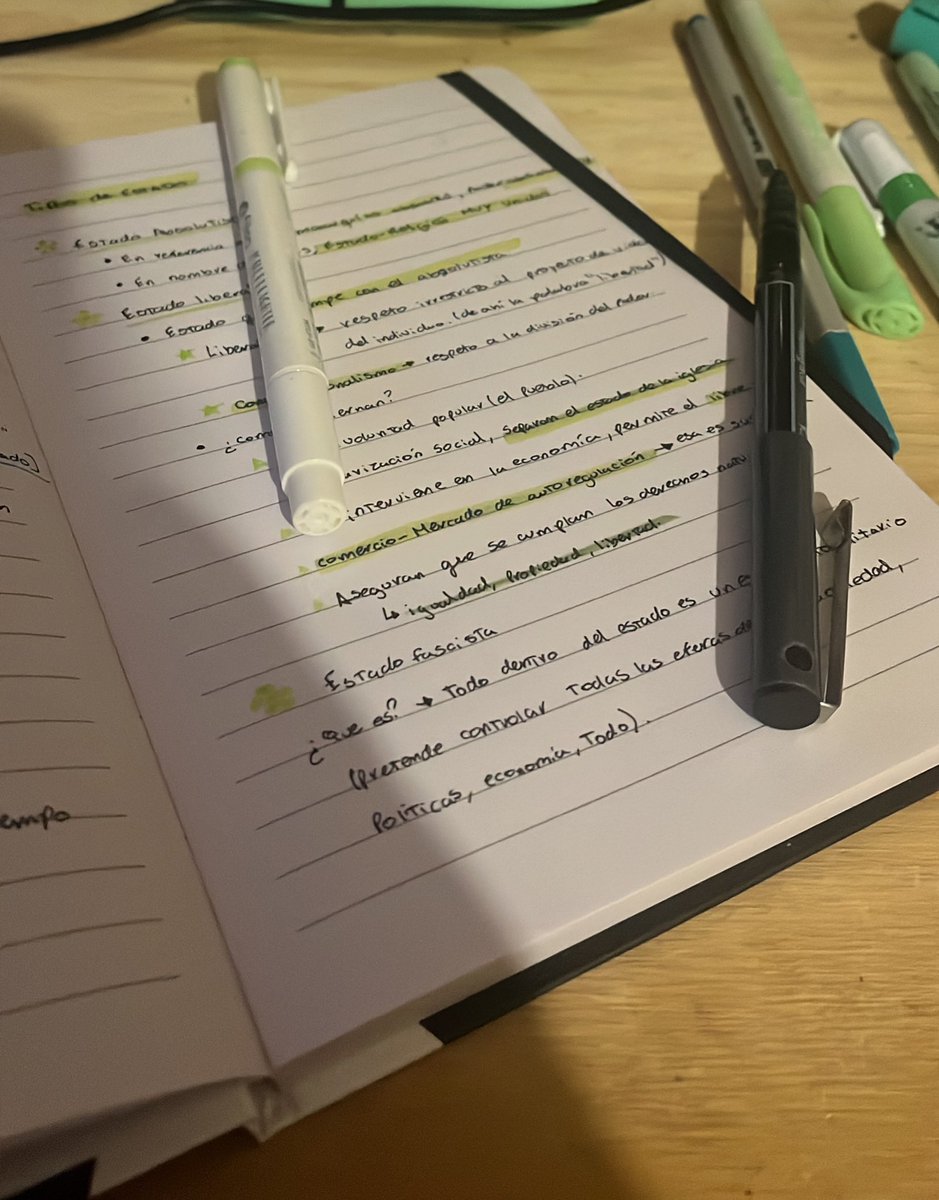 Tipos de Estados
Estado Absolutis
• En referencia
, Estado Religión muy unidad
• En nombre
Estado libera mpe con el absolutista
• Estado respeto irrestricto al proyecto de vida
Libera del individuo. (de ahí la palabra "libertad")
Con onalismo → respeto a la división del poder
• ¿com ernan?
voluntad popular (el pueblo).
uvización social, separan el estado de la iglesia
interviene en la economía, permite el libre
comercio - Mercado de autoregulación → esa es su
Aseguran que se cumplan los derechos natu
↳ igualdad, propiedad, libertad.
Estado fascista
¿Que es? → Todo dentro del estado es un e litario
(Pretende controlar Todas las eferas de ciedad,
Políticas, economía, Todo).
empo